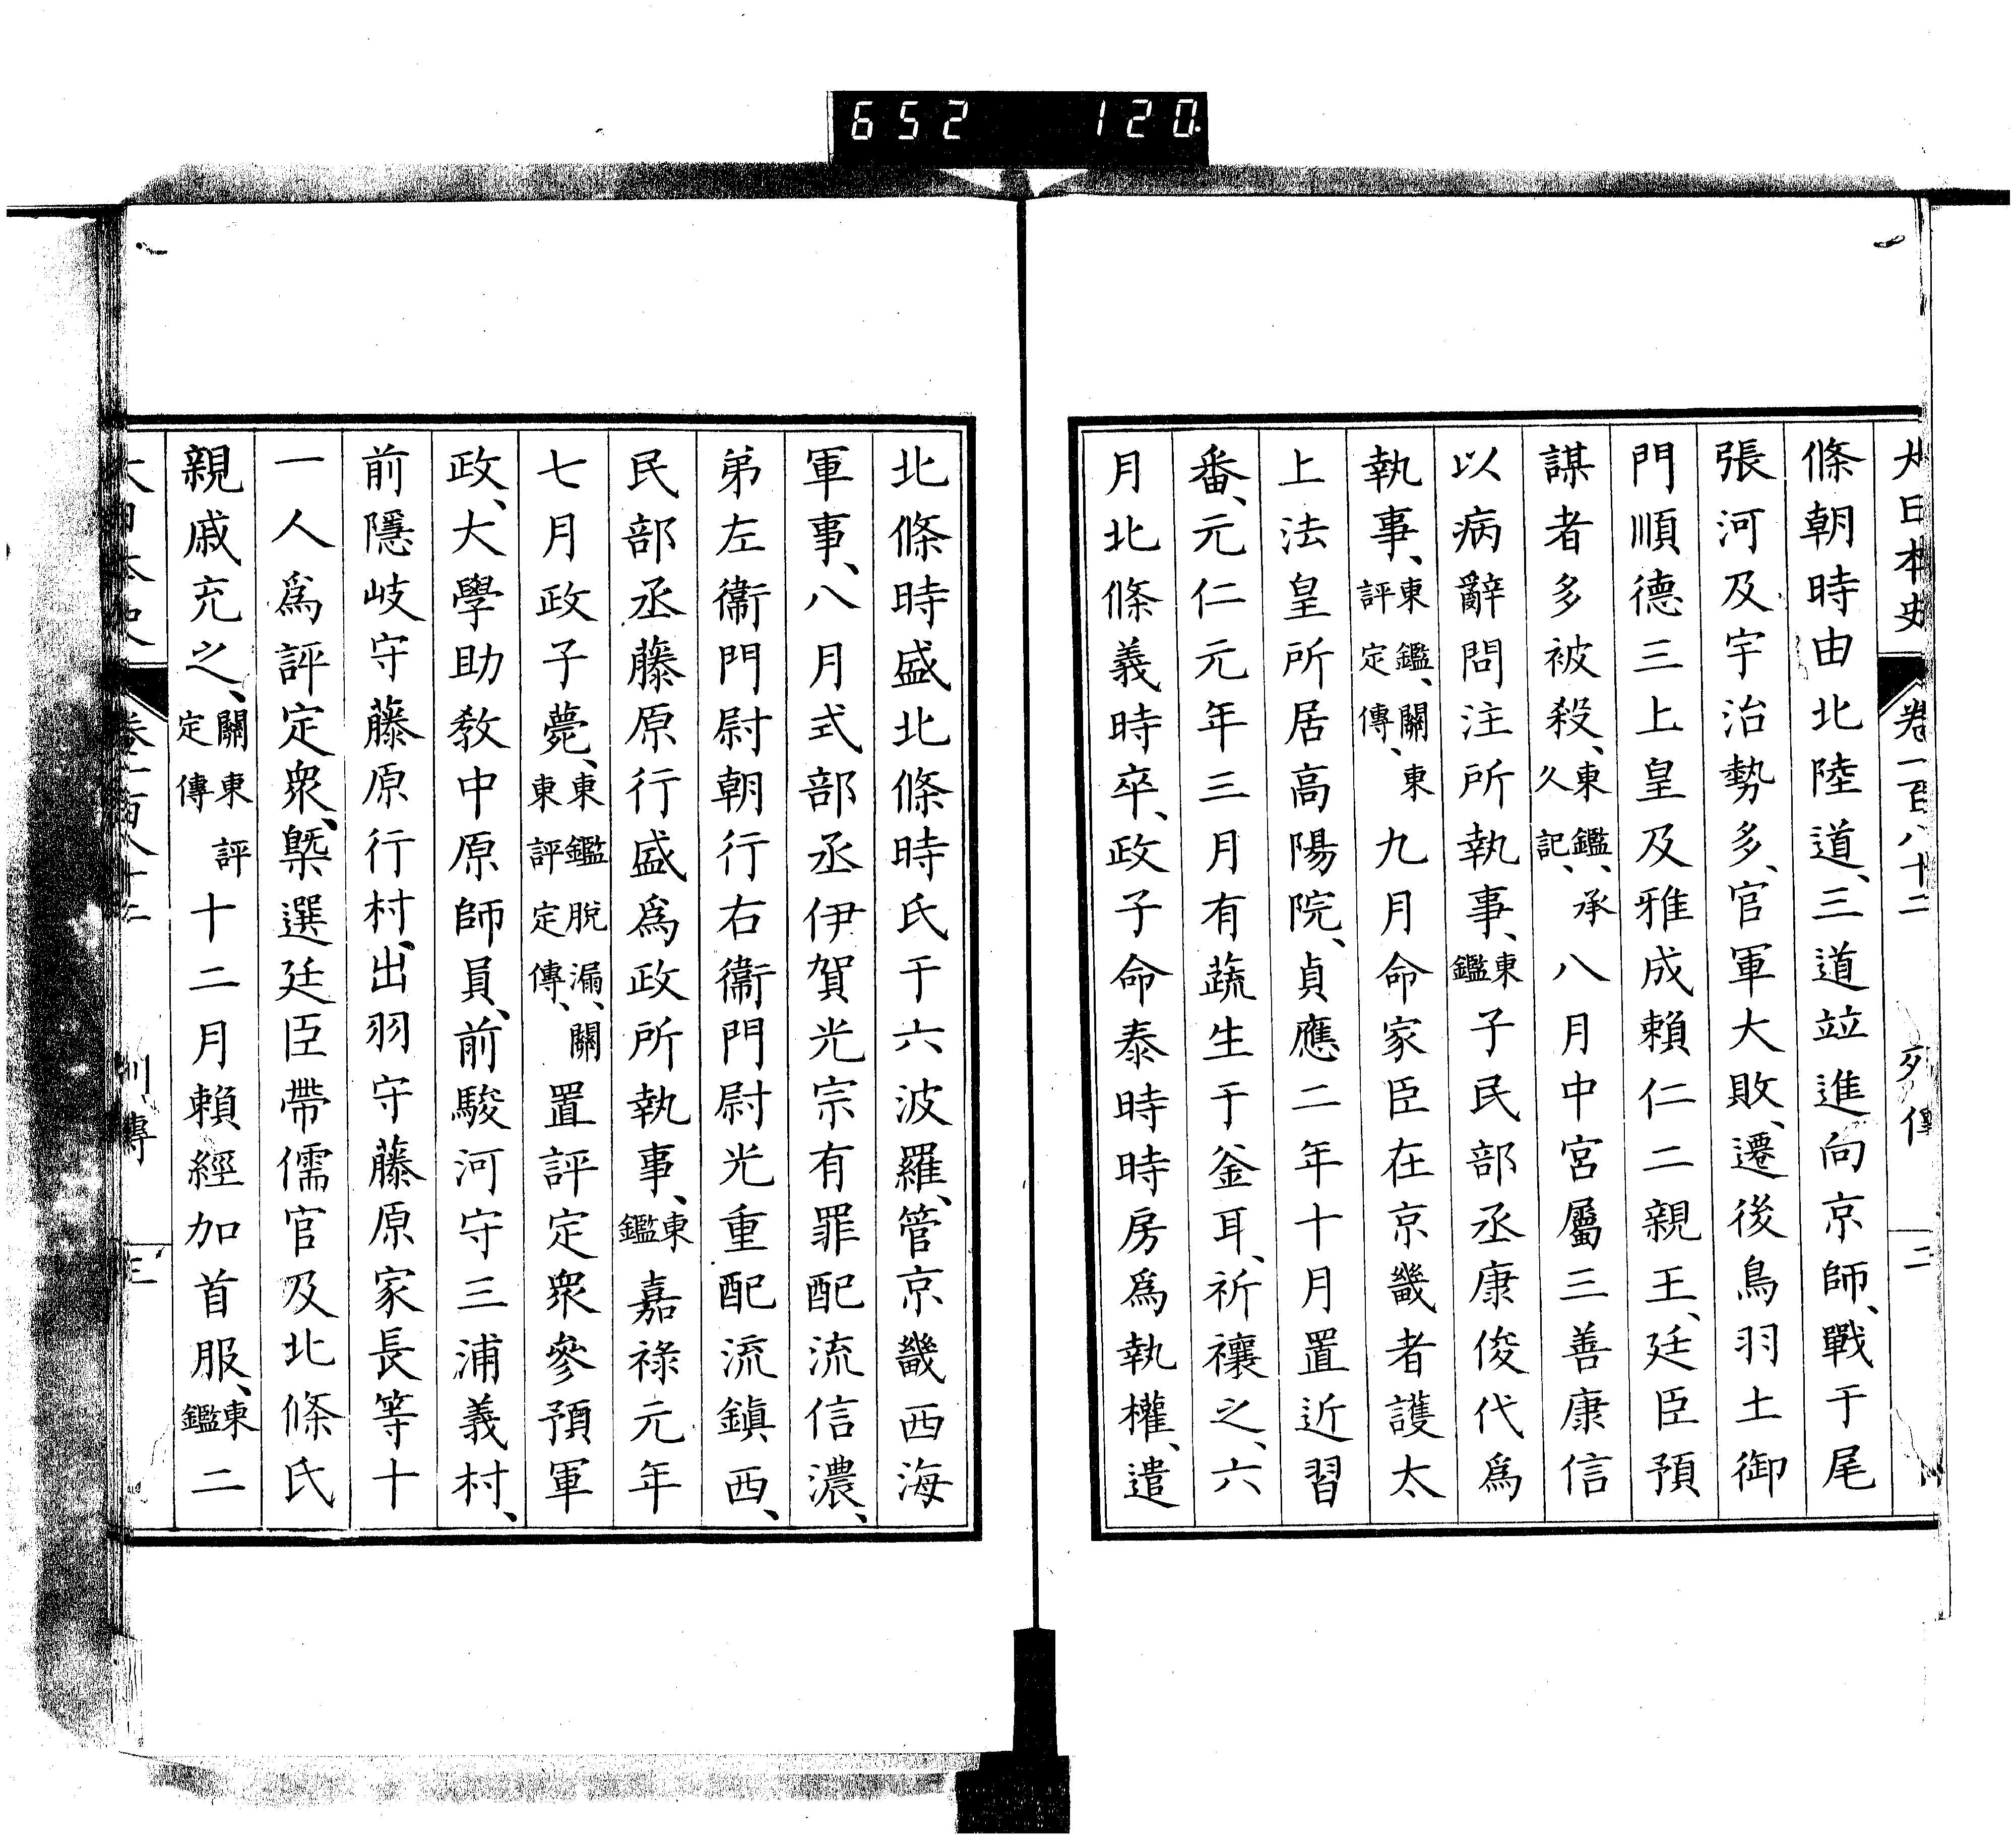 652 120
大日本史 卷一百八十二 列傳 二
條朝時由北陸道、三道竝進向京師、戰于尾
張河及宇治勢多、官軍大敗、遷後鳥羽土御
門順德三上皇及雅成賴仁二親王、廷臣預
謀者多被殺、東鑑、承久記、八月中宮屬三善康信
以病辭問注所執事、東鑑子民部丞康俊代爲
執事、東鑑、關東評定傳、九月命家臣在京畿者護太
上法皇所居高陽院、貞應二年十月置近習
番、元仁元年三月有蔬生于釜耳、祈禳之、六
月北條義時卒、政子命泰時時房爲執權、遣
北條時盛北條時氏于六波羅、管京畿西海
軍事、八月式部丞伊賀光宗有罪配流信濃、
弟左衞門尉朝行右衞門尉光重配流鎭西、
民部丞藤原行盛爲政所執事、東鑑嘉祿元年
七月政子薨、東鑑脫漏、關東評定傳、置評定衆參預軍
政、大學助教中原師員、前駿河守三浦義村、
前隱岐守藤原行村、出羽守藤原家長等十
一人爲評定衆、槩選廷臣帶儒官及北條氏
親戚充之、關東評定傳十二月賴經加首服、東鑑二
大日本史 卷一百八十二 列傳 三